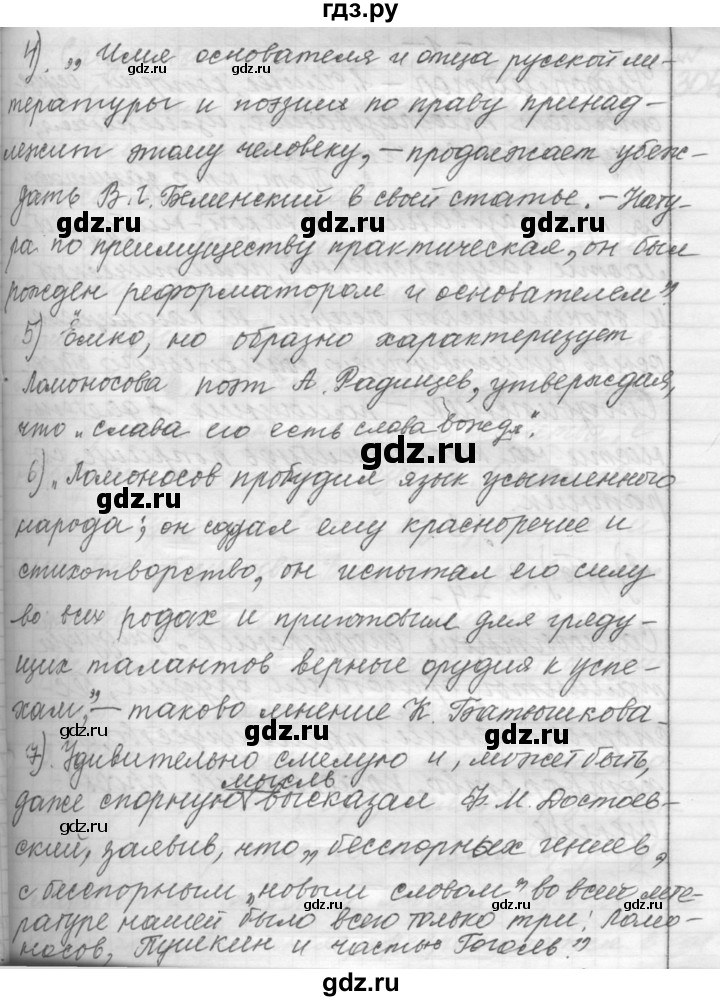 гдз.ру
4). „Имя основателя и отца русской ли-
тературы и поэзии по праву принад-
лежит этому человеку, – продолжает убеж-
дать В. Г. Белинский в своей статье. – Нату-
ра по преимуществу практическая, он был
рожден реформатором и основателем".
5) Ёмко, но образно характеризует
Ломоносова поэт А. Радищев, утверждая,
что „слава его есть слава вождя".
6) „Ломоносов пробудил язык усыпленного
народа; он создал ему красноречие и
стихотворство, он испытал его силу
во всех родах и приготовил для гряду-
щих талантов верные орудия к успе-
хам," – таково мнение К. Батюшкова.
7). Удивительно смелую и, может быть,
мысль
даже спорную высказал Ф. М. Достоев-
ский, заявив, что „бесспорных гениев,
с бесспорным „новым словом" во всей лите-
ратуре нашей было всего только три: Ломо-
носов, Пушкин и частью Гоголь."
gdz.ru